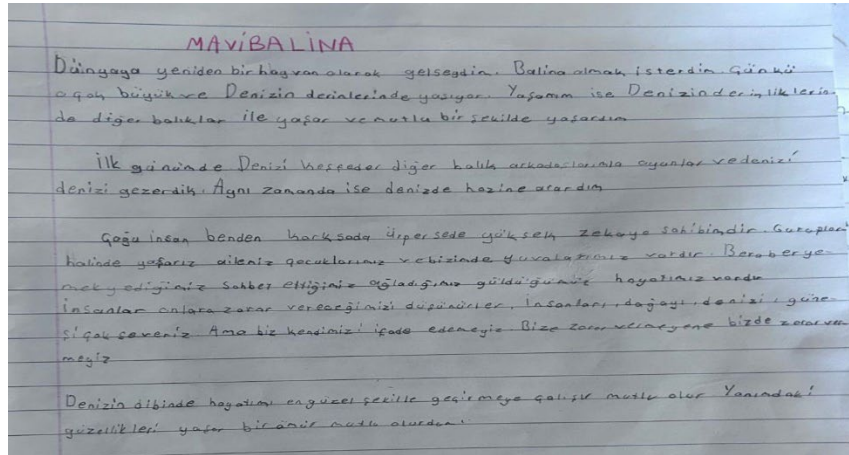 MAVİBALİNA
Dünyaya yeniden bir hayvan olarak gelseydin. Balina olmak isterdim. Günkü
o çok büyük ve Denizin derinlerinde yaşıyor. Yaşamım ise Denizin derinliklerin-
de diğer balıklar ile yaşar ve mutlu bir şekilde yaşardım
İlk günümde Denizi keşfeder diğer balık arkadaşlarımla oyunlar ve denizi
denizi gezerdik. Aynı zamanda ise denizde hazine arardım
Çoğu insan benden korksada ürpersede yüksek zekaya sahibimdir. Guruplar
halinde yaşarız aileniz çocuklarımız ve bizimde yuvalarımız vardır. Beraber ye-
mek yediğimiz sohbet ettiğimiz ağladığımız güldüğümüz hayatımız vardır
İnsanlar onlara zarar vereceğimizi düşünürler, İnsanları, doğayı, denizi, güne-
şi çok severiz Ama biz kendimizi ifade edemeyiz. Bize zarar vermeyene bizde zarar ver-
meyiz
Denizin dibinde hayatımı en güzel şekille geçirmeye çalışır mutlu olur Yanımdaki
güzellikleri yaşar bir ömür mutlu olurdum.